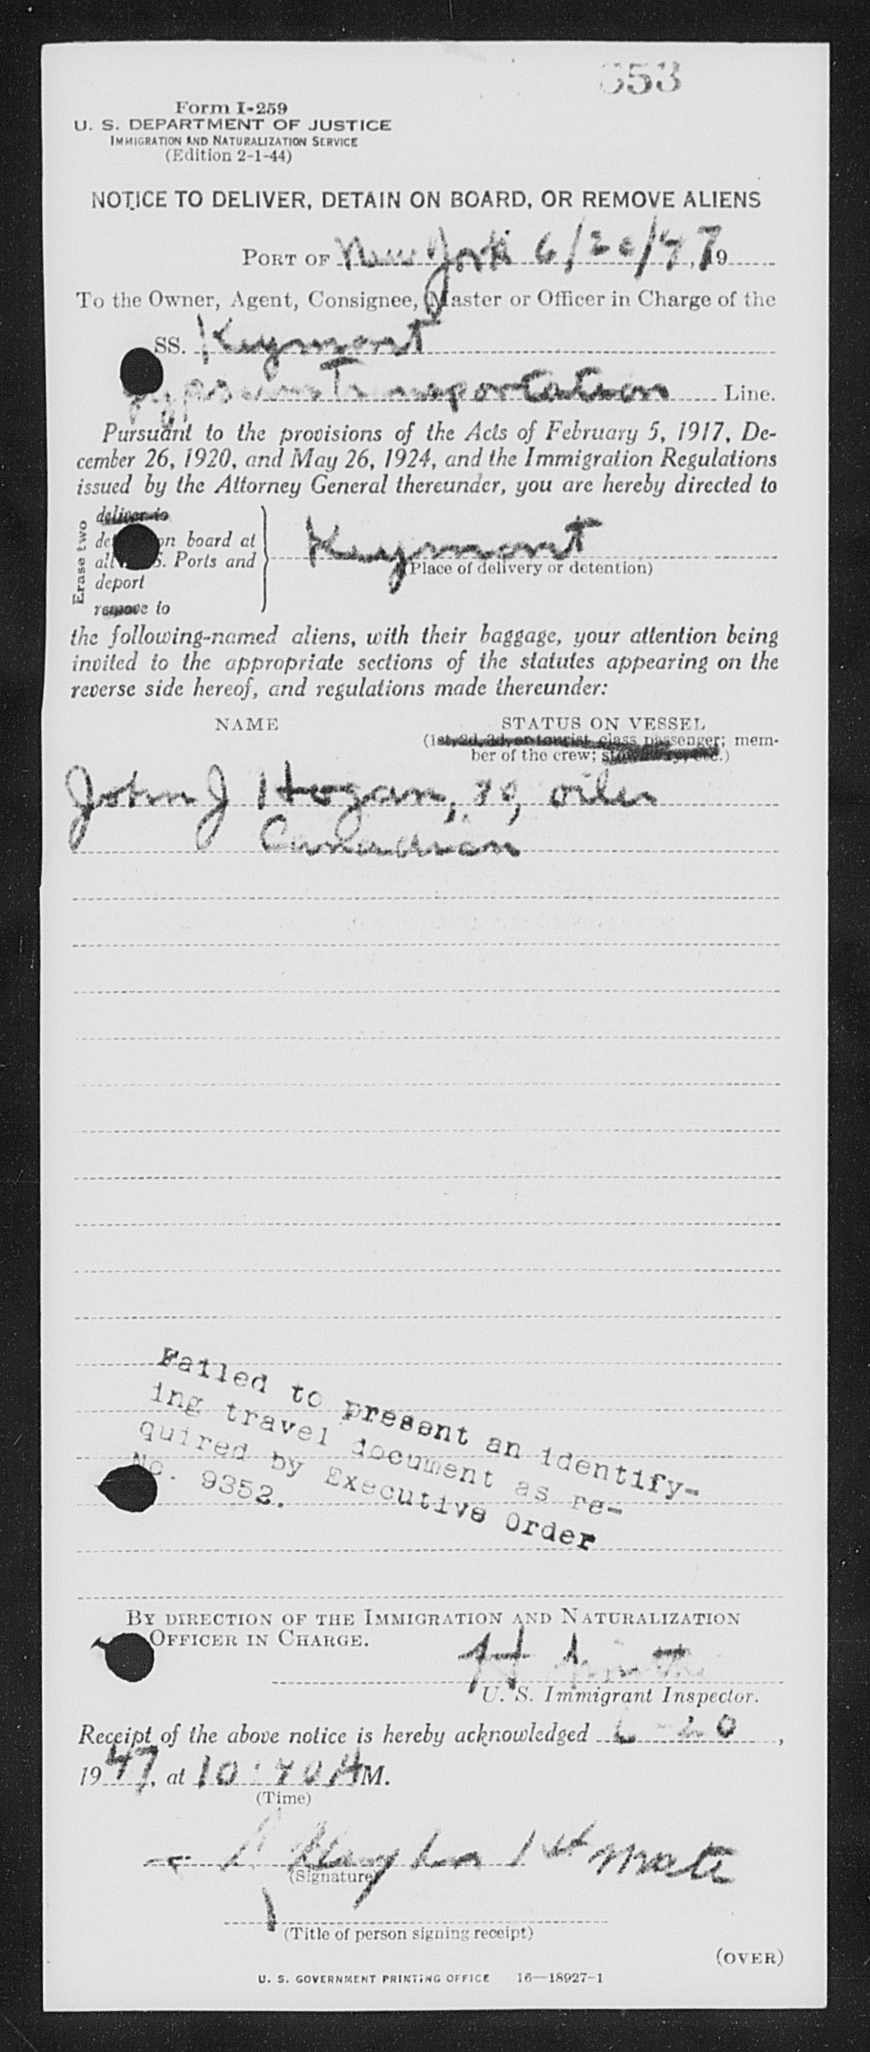 653
Form I-259
U. S. DEPARTMENT OF JUSTICE
IMMIGRATION AND NATURALIZATION SERVICE
(Edition 2-1-44)
NOTICE TO DELIVER, DETAIN ON BOARD, OR REMOVE ALIENS
PORT OF New York 6/20/47, 19
To the Owner, Agent, Consignee, Master or Officer in Charge of the
SS. Keymont
Gypsum Transportation Line.
Pursuant to the provisions of the Acts of February 5, 1917, De-
cember 26, 1920, and May 26, 1924, and the Immigration Regulations
issued by the Attorney General thereunder, you are hereby directed to
Erase two
deliver to
on board at
all S. Ports and
deport
remove to
Keymont
(Place of delivery or detention)
the following-named aliens, with their baggage, your attention being
invited to the appropriate sections of the statutes appearing on the
reverse side hereof, and regulations made thereunder:
NAME STATUS ON VESSEL
(1st, 2d, 3d, or tourist class passenger; mem-
ber of the crew; stowaway, etc.)
John J Hogan, oiler
Canadian
Failed to present an identify-
ing travel document as re-
quired by Executive Order
No. 9352.
BY DIRECTION OF THE IMMIGRATION AND NATURALIZATION
OFFICER IN CHARGE.
H Smith
U. S. Immigrant Inspector.
Receipt of the above notice is hereby acknowledged 6-20,
1947, at 10:40 AM.
(Time)
1st Mate
(Signature)
(Title of person signing receipt)
(OVER)
U. S. GOVERNMENT PRINTING OFFICE 16—18927-1